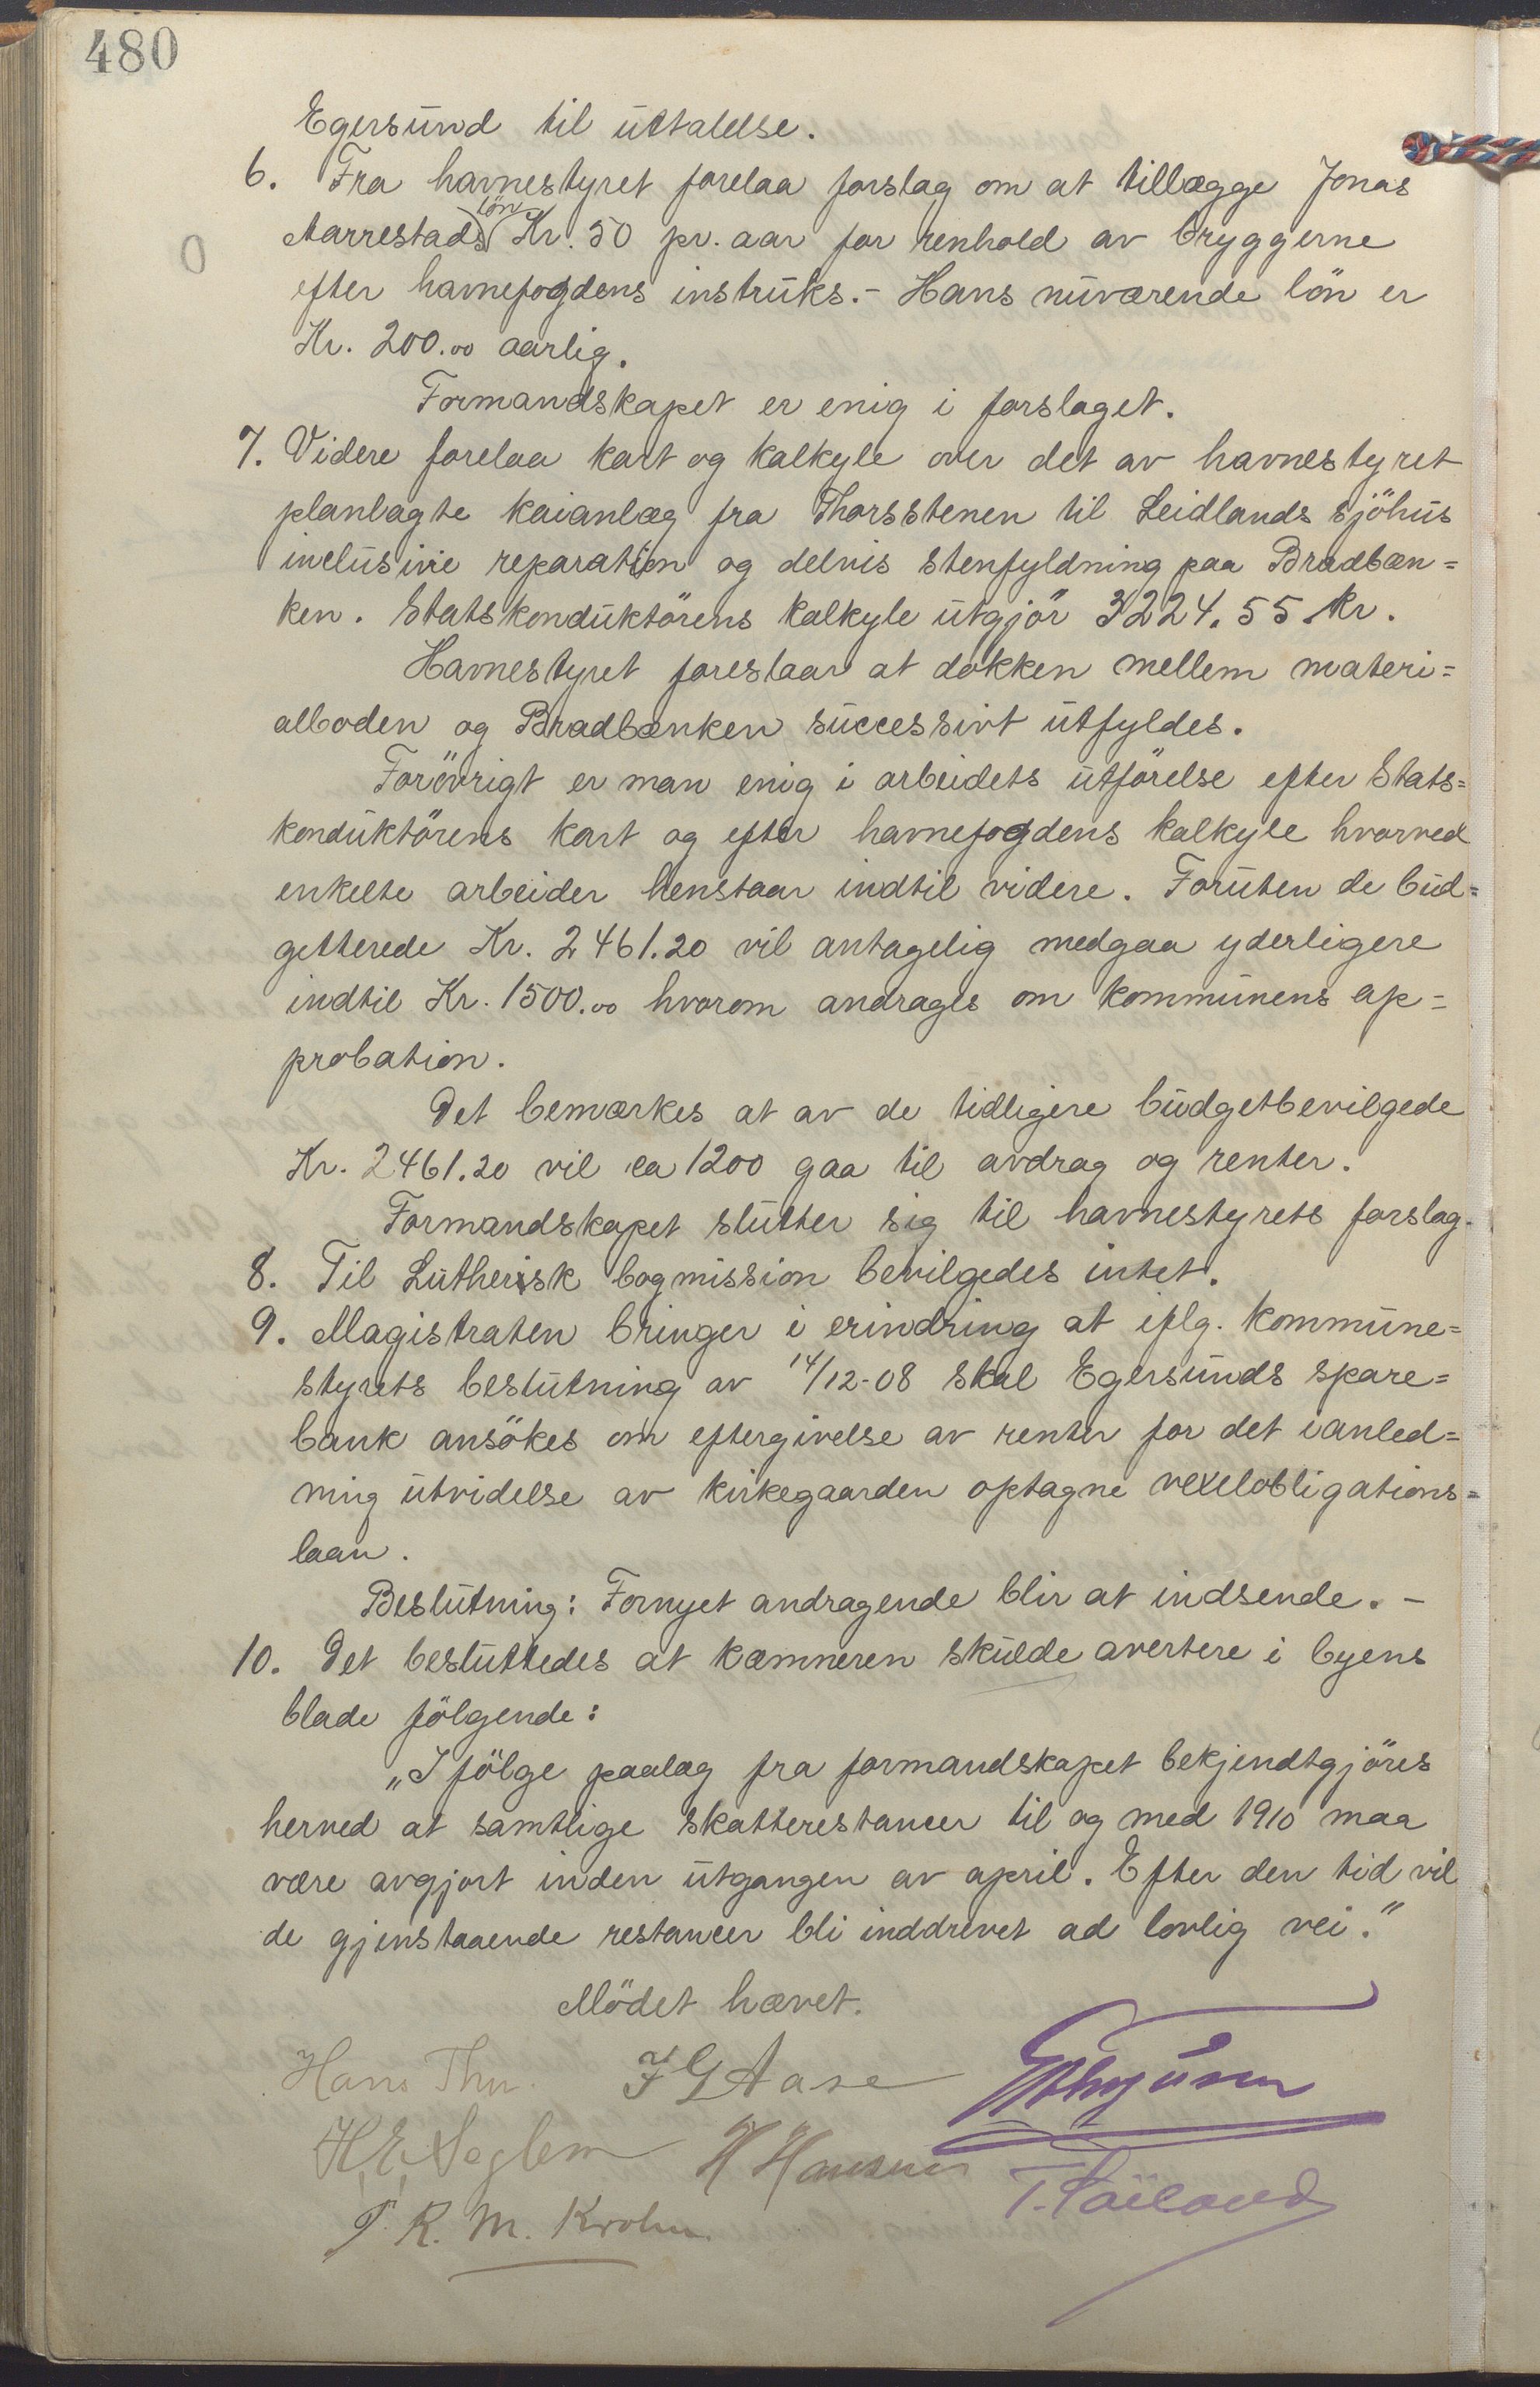 480
Egersund til uttalelse.
6. Fra havnestyret forelaa forslag om at tillægge Jonas
Aarrestads lön Kr. 50 pr. aar for renhold av bryggerne
0
efter havnefogdens instruks. - Hans nuværende lön er
Kr. 200.00 aarlig.
Formandskapet er enig i forslaget.
7. Videre forelaa kart og kalkyle over det av havnestyret
planlagte kaianlæg fra Thorsstenen til Leidlands sjöhus
inclusive reparation og delvis stenfyldning paa Bradbæn=
ken. Statskonduktörens kalkyle utgjör 3224.55 kr.
Havnestyret foreslaar at dokken mellem materi=
alboden og Bradbænken successivt utfyldes.
Forövrigt er man enig i arbeidets utförelse efter Stats=
konduktörens kart og efter havnefogdens kalkyle hvorved
enkelte arbeider henstaar indtil videre. Foruten de bud=
getterede Kr. 2461.20 vil antagelig medgaa yderligere
indtil Kr. 1500.00 hvorom andrages om kommunens ap=
probation.
Det bemærkes at av de tidligere budgetbevilgede
Kr. 2461.20 vil ca 1200 gaa til avdrag og renter.
Formandskapet slutter sig til havnestyrets forslag.
8. Til Luthersk bogmission bevilgedes intet.
9. Magistraten bringer i erindring at iflg. kommune=
styrets beslutning av 14/12-08 skal Egersunds spare=
bank ansökes om eftergivelse av renter for det ianled=
ning utvidelse av kirkegaarden optagne vexelobligations=
laan.
Beslutning: Fornyet andragende blir at indsende. -
10. Det besluttedes at kæmneren skulde avertere i byens
blade fölgende:
„I fölge paalæg fra formandskapet bekjendtgjöres
herved at samtlige skatterestancer til og med 1910 maa
være avgjort inden utgangen av april. Efter den tid vil
de gjenstaaende restancer bli inddrevet ad lovlig vei."
Mödet hævet.
Hans Thu. J G Aase
H. E. Seglem H Hansen
P. R. M. Krohn